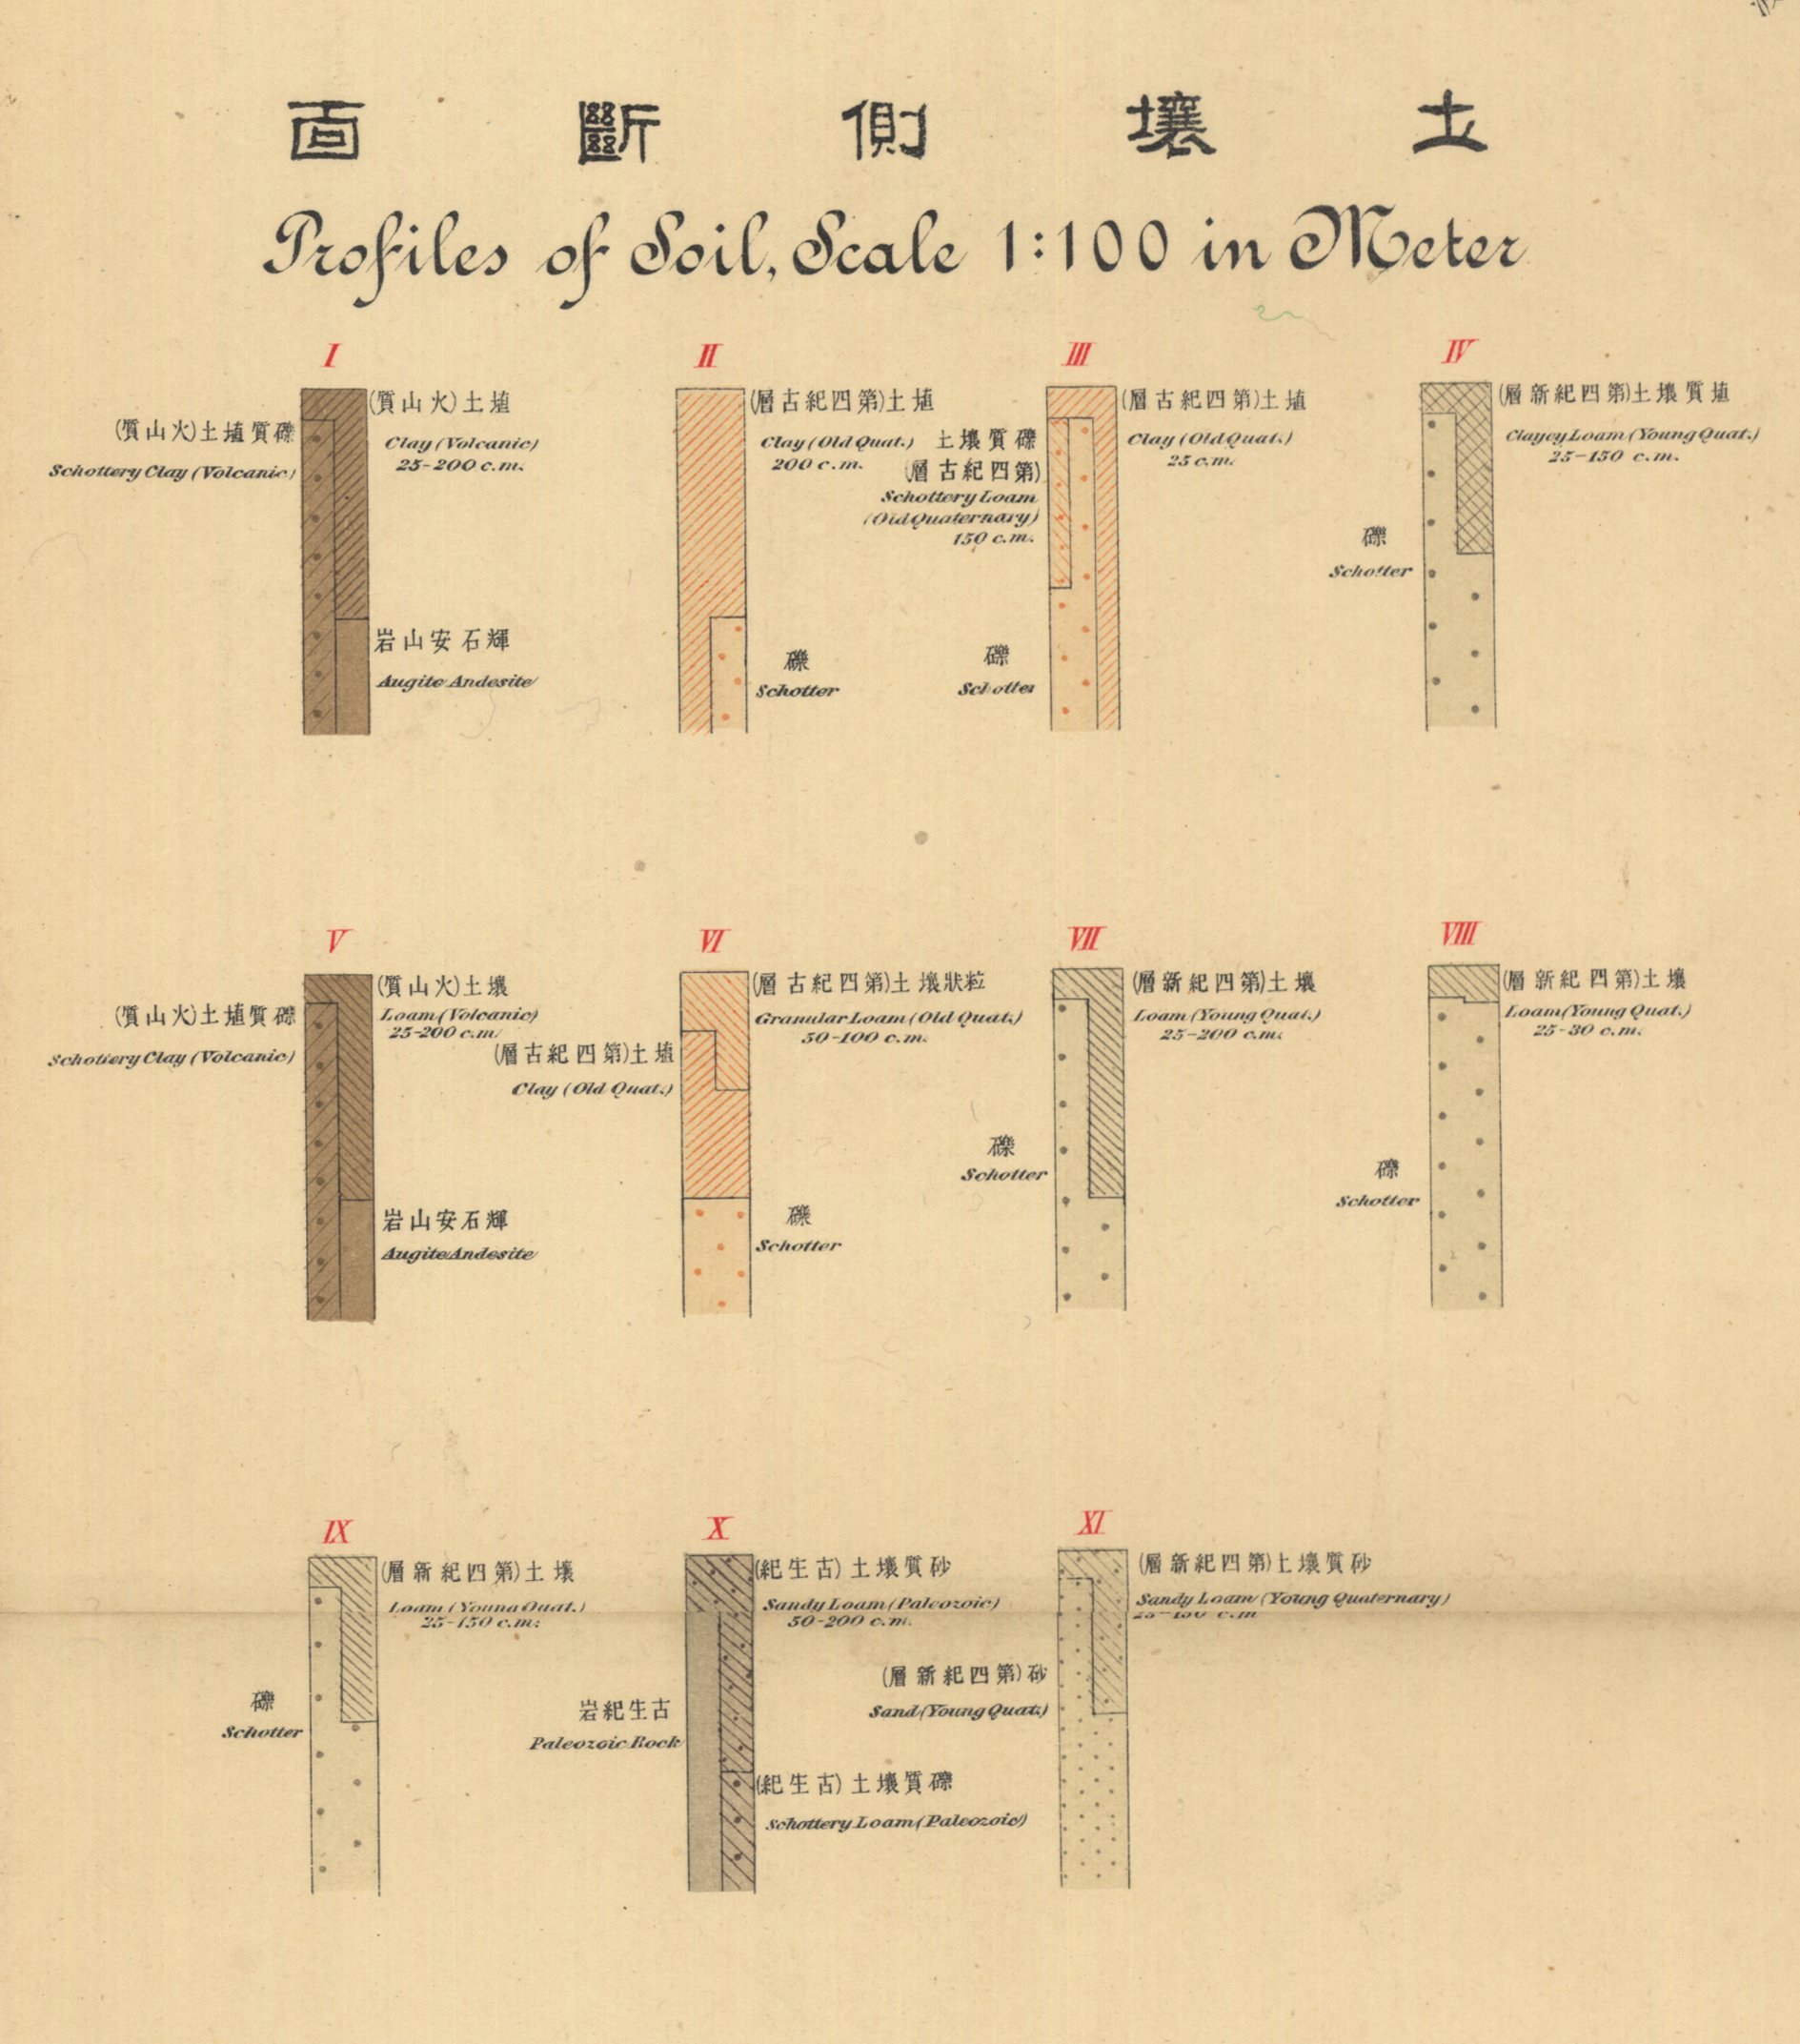 土壤側斷面
Profiles of Soil, Scale 1:100 in Meter
I
埴土(火山質)
Clay (Volcanic)
25-200 c.m.
礫質埴土(火山質)
Schottery Clay (Volcanic)
輝石安山岩
Augite Andesite
II
埴土(第四紀古層)
Clay (Old Quat.)
200 c.m.
礫
Schotter
III
埴土(第四紀古層)
Clay (Old Quat.)
25 c.m.
礫質壤土
(第四紀古層)
Schottery Loam
(Old Quaternary)
150 c.m.
礫
Schotter
IV
埴質壤土(第四紀新層)
Clayey Loam (Young Quat.)
25-150 c.m.
礫
Schotter
V
壤土(火山質)
Loam (Volcanic)
25-200 c.m.
礫質埴土(火山質)
Schottery Clay (Volcanic)
輝石安山岩
Augite Andesite
VI
粒狀壤土(第四紀古層)
Granular Loam (Old Quat.)
50-100 c.m.
埴土(第四紀古層)
Clay (Old Quat.)
礫
Schotter
VII
壤土(第四紀新層)
Loam (Young Quat.)
25-200 c.m.
礫
Schotter
VIII
壤土(第四紀新層)
Loam (Young Quat.)
25-30 c.m.
礫
Schotter
IX
壤土(第四紀新層)
Loam (Young Quat.)
25-150 c.m.
礫
Schotter
X
砂質壤土(古生紀)
Sandy Loam (Paleozoic)
50-200 c.m.
古生紀岩
Paleozoic Rock
礫質壤土(古生紀)
Schottery Loam (Paleozoic)
XI
砂質壤土(第四紀新層)
Sandy Loam (Young Quaternary)
25-150 c.m
砂(第四紀新層)
Sand (Young Quat.)